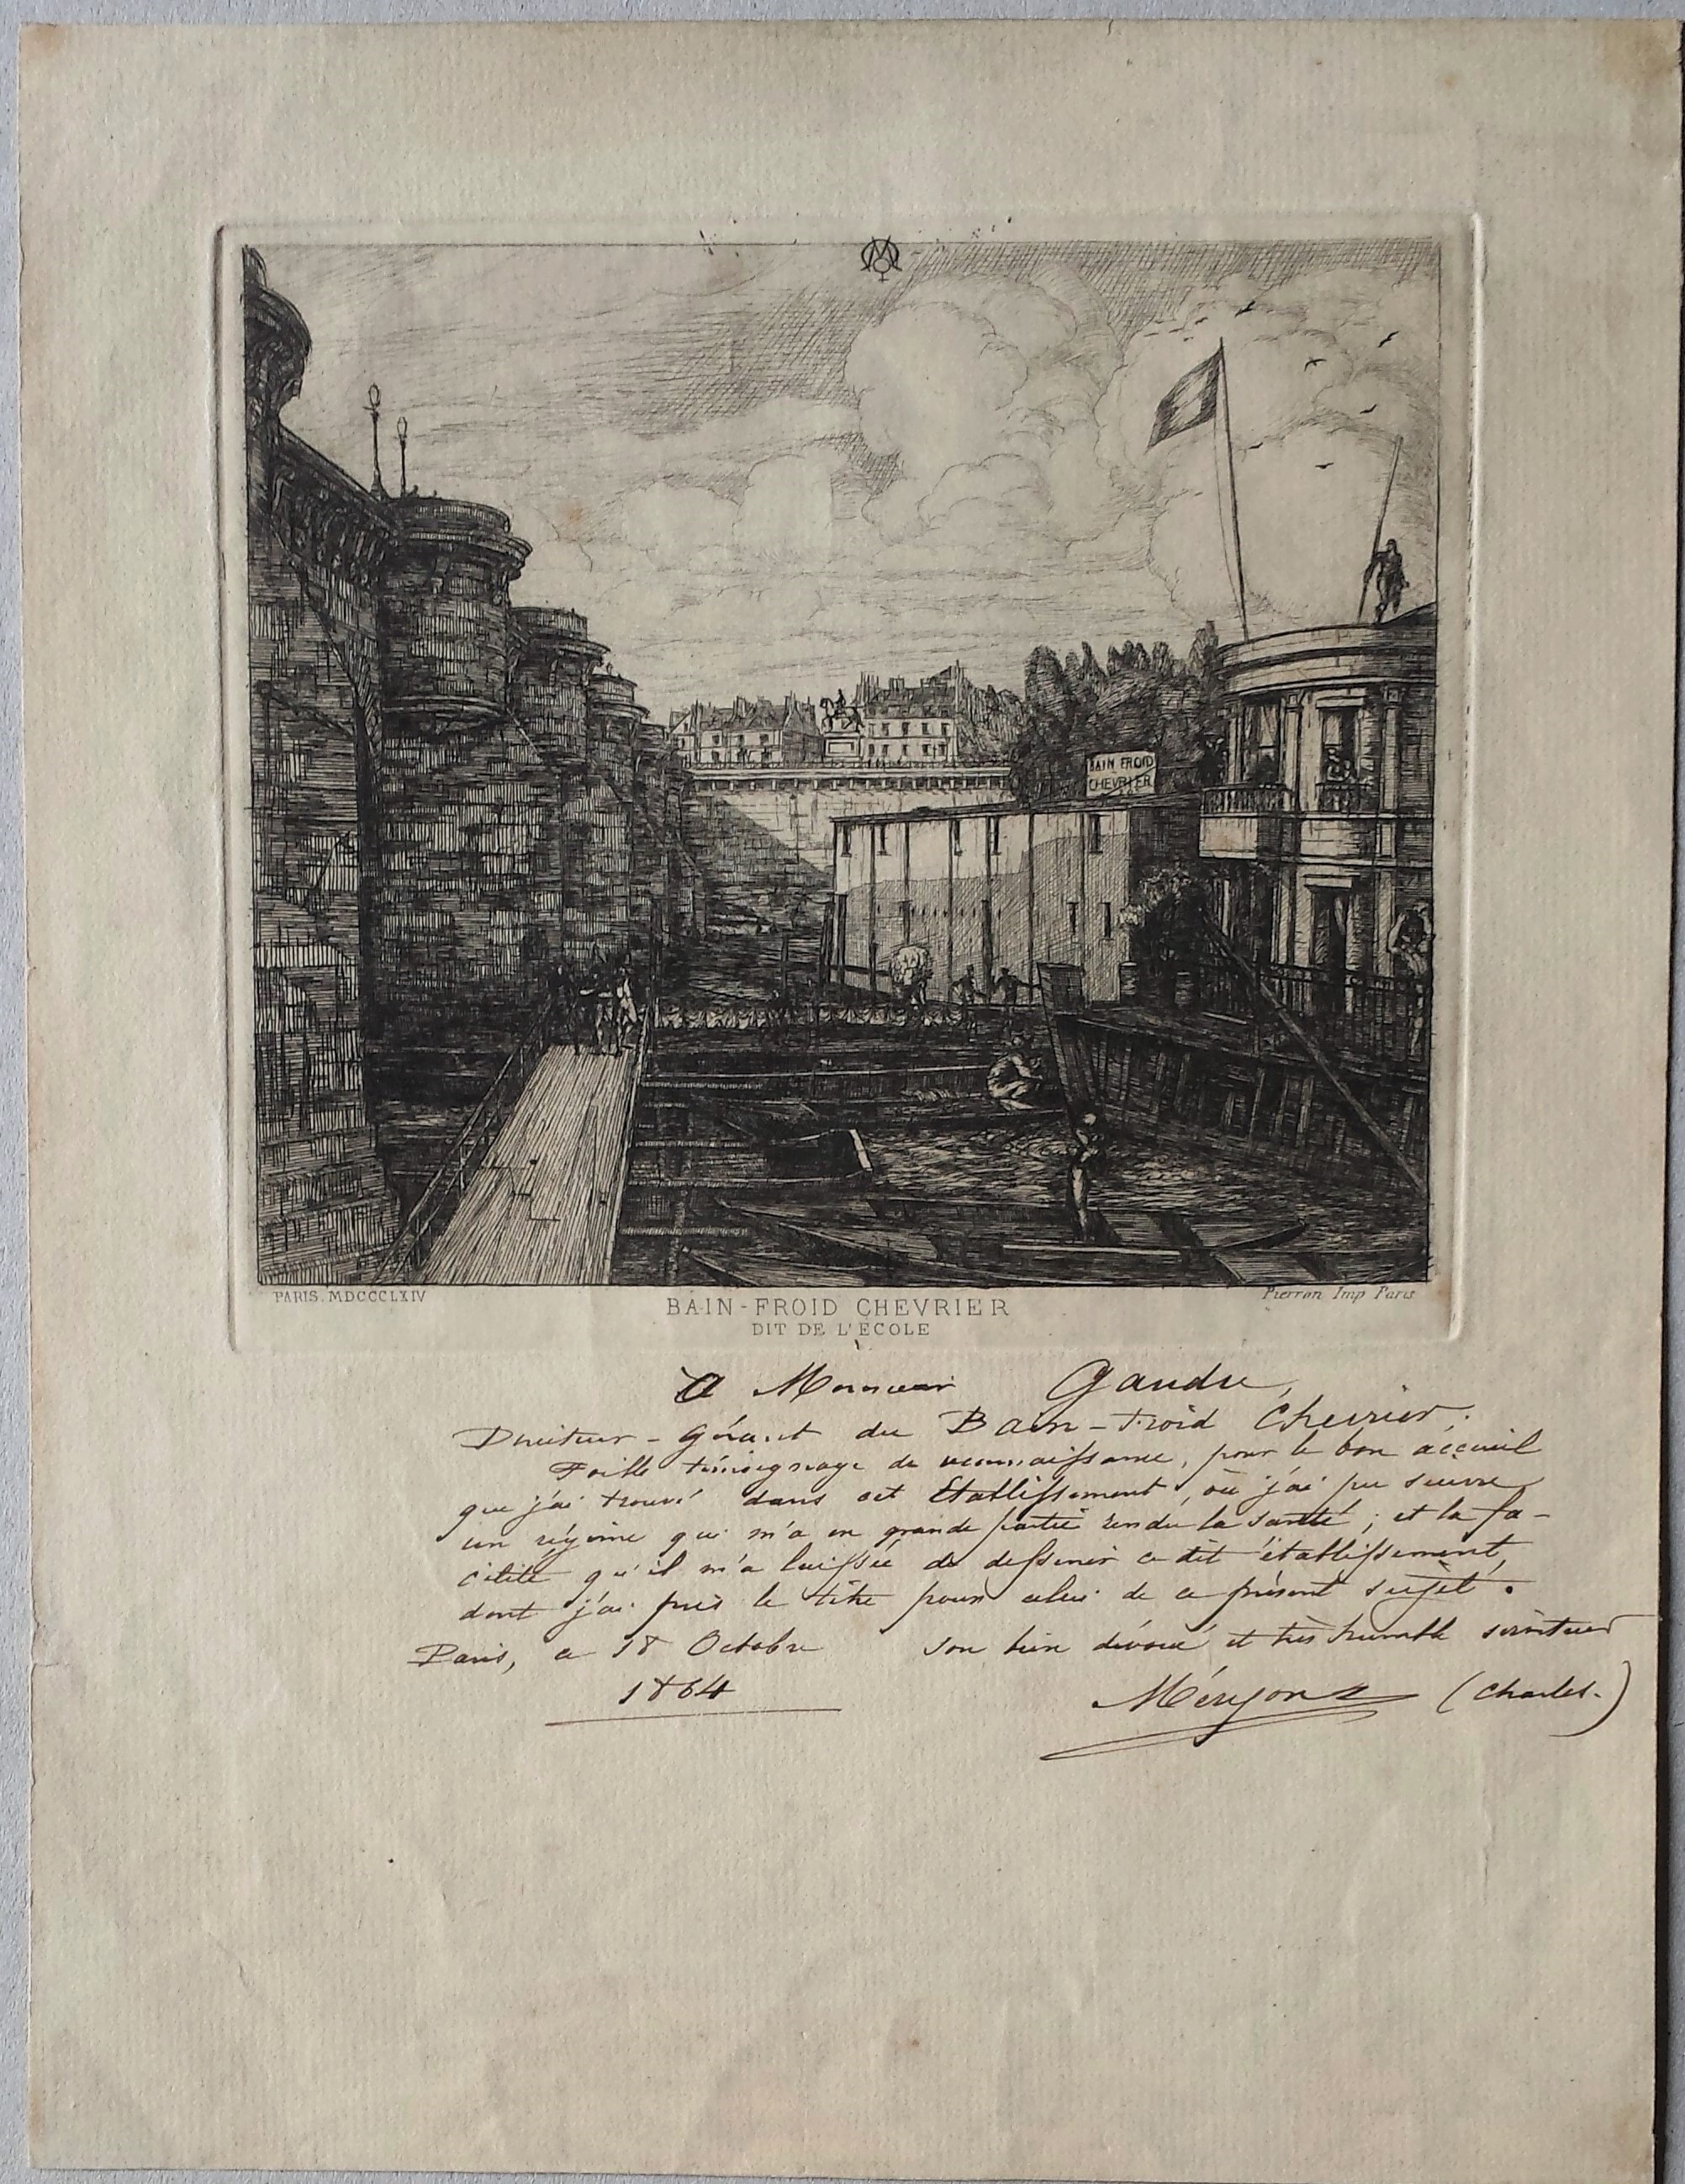 BAIN FROID
CHEVRIER
PARIS. MDCCCLXIV
Pierron Imp Paris
BAIN-FROID CHEVRIER
DIT DE L'ECOLE
A Monsieur Gaudu,
Directeur-Gérant du Bain-froid Chevrier;
Foible témoignage de reconnaissance, pour le bon accueil
que j'ai trouvé dans cet Etablissement, où j'ai pu suivre
un régime qui m'a en grande partie rendu la santé; et la fa-
cilité qu'il m'a laissée de dessiner ce dit établissement,
dont j'ai pris le titre pour celui de ce présent sujet.
Paris, ce 18 Octobre
1864
son bien dévoué et très humble serviteur
Méryon (Charles.)